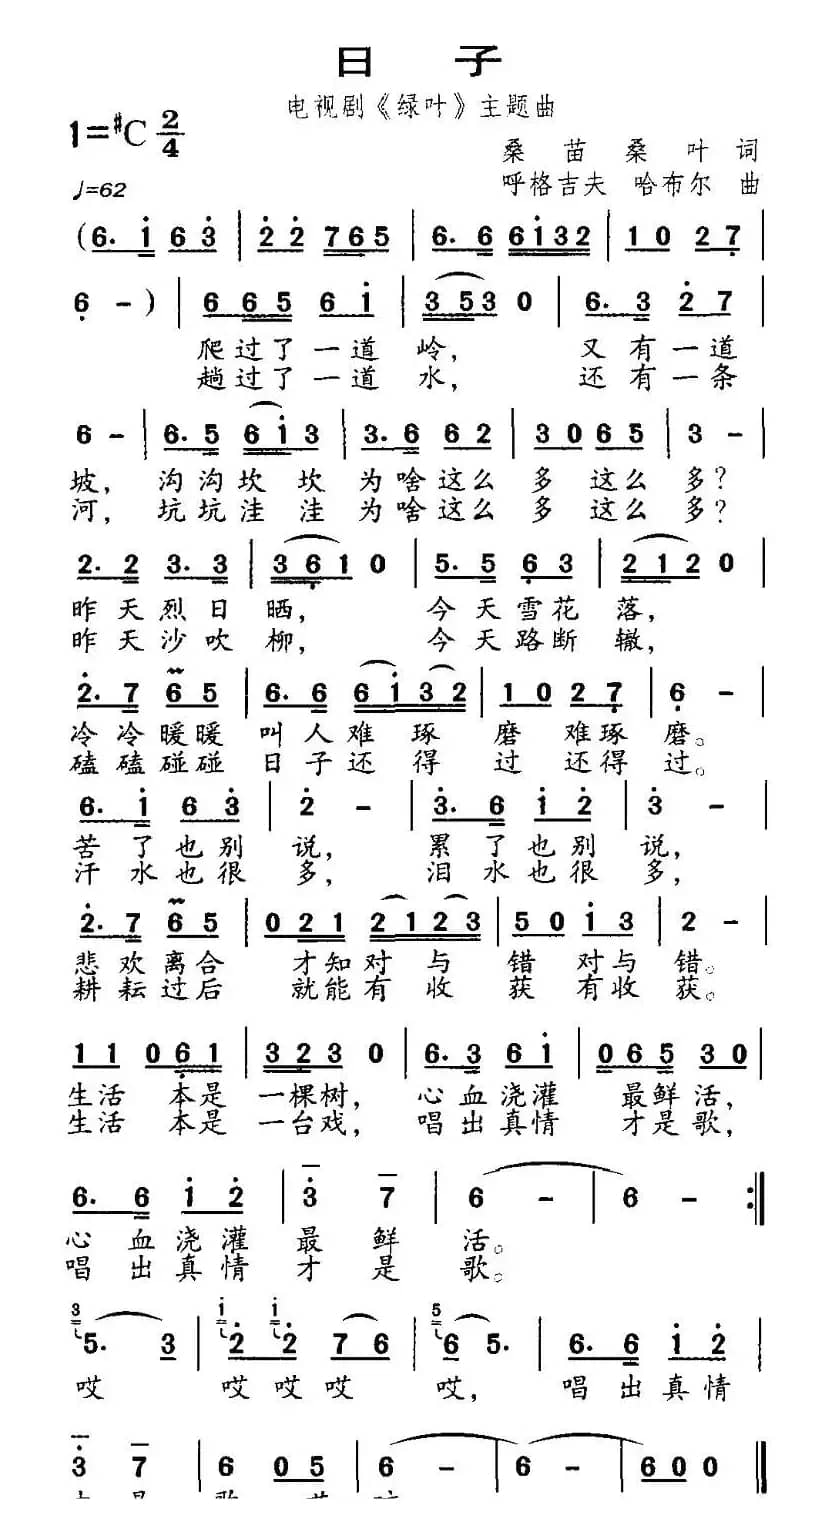 日 子
电视剧《绿叶》主题曲
1=#C 2/4
桑 苗 桑 叶 词
♩=62
呼格吉夫 哈布尔 曲
(6. i 6 3 | 2 2 7 6 5 | 6. 6 6 i 3 2 | 1 0 2 7 |
6 - ) | 6 6 5 6 i | 3 5 3 0 | 6. 3 2 7 |
爬过了一道 岭, 又有一道
趟过了一道 水, 还有一条
6 - | 6. 5 6 i 3 | 3. 6 6 2 | 3 0 6 5 | 3 - |
坡, 沟沟坎 坎 为啥这么 多 这么 多?
河, 坑坑洼 洼 为啥这么 多 这么 多?
2. 2 3. 3 | 3 6 1 0 | 5. 5 6 3 | 2 1 2 0 |
昨天烈日 晒, 今天雪花 落,
昨天沙吹 柳, 今天路断 辙,
2. 7 6 5 | 6. 6 6 i 3 2 | 1 0 2 7 | 6 - |
冷冷暖暖 叫人难 琢 磨 难琢 磨。
磕磕碰碰 日子还 得 过 还得 过。
6. i 6 3 | 2 - | 3. 6 i 2 | 3 - |
苦了也别 说, 累了也别 说,
汗水也很 多, 泪水也很 多,
2. 7 6 5 | 0 2 1 2 1 2 3 | 5 0 i 3 | 2 - |
悲欢离合 才知对 与 错 对与 错。
耕耘过后 就能有 收 获 有收 获。
1 1 0 6 1 | 3 2 3 0 | 6. 3 6 i | 0 6 5 3 0 |
生活 本是 一棵树, 心血浇灌 最鲜 活,
生活 本是 一台戏, 唱出真情 才是歌,
6. 6 i 2 | 3 7 | 6 - | 6 - :|
心血浇灌 最 鲜 活。
唱出真情 才 是 歌。
3 i i 5
5. 3 | 2 2 7 6 | 6 5. | 6. 6 i 2 |
哎 哎哎哎 哎, 唱出真情
3 7 | 6 0 5 | 6 - | 6 - | 6 0 0 0 ||